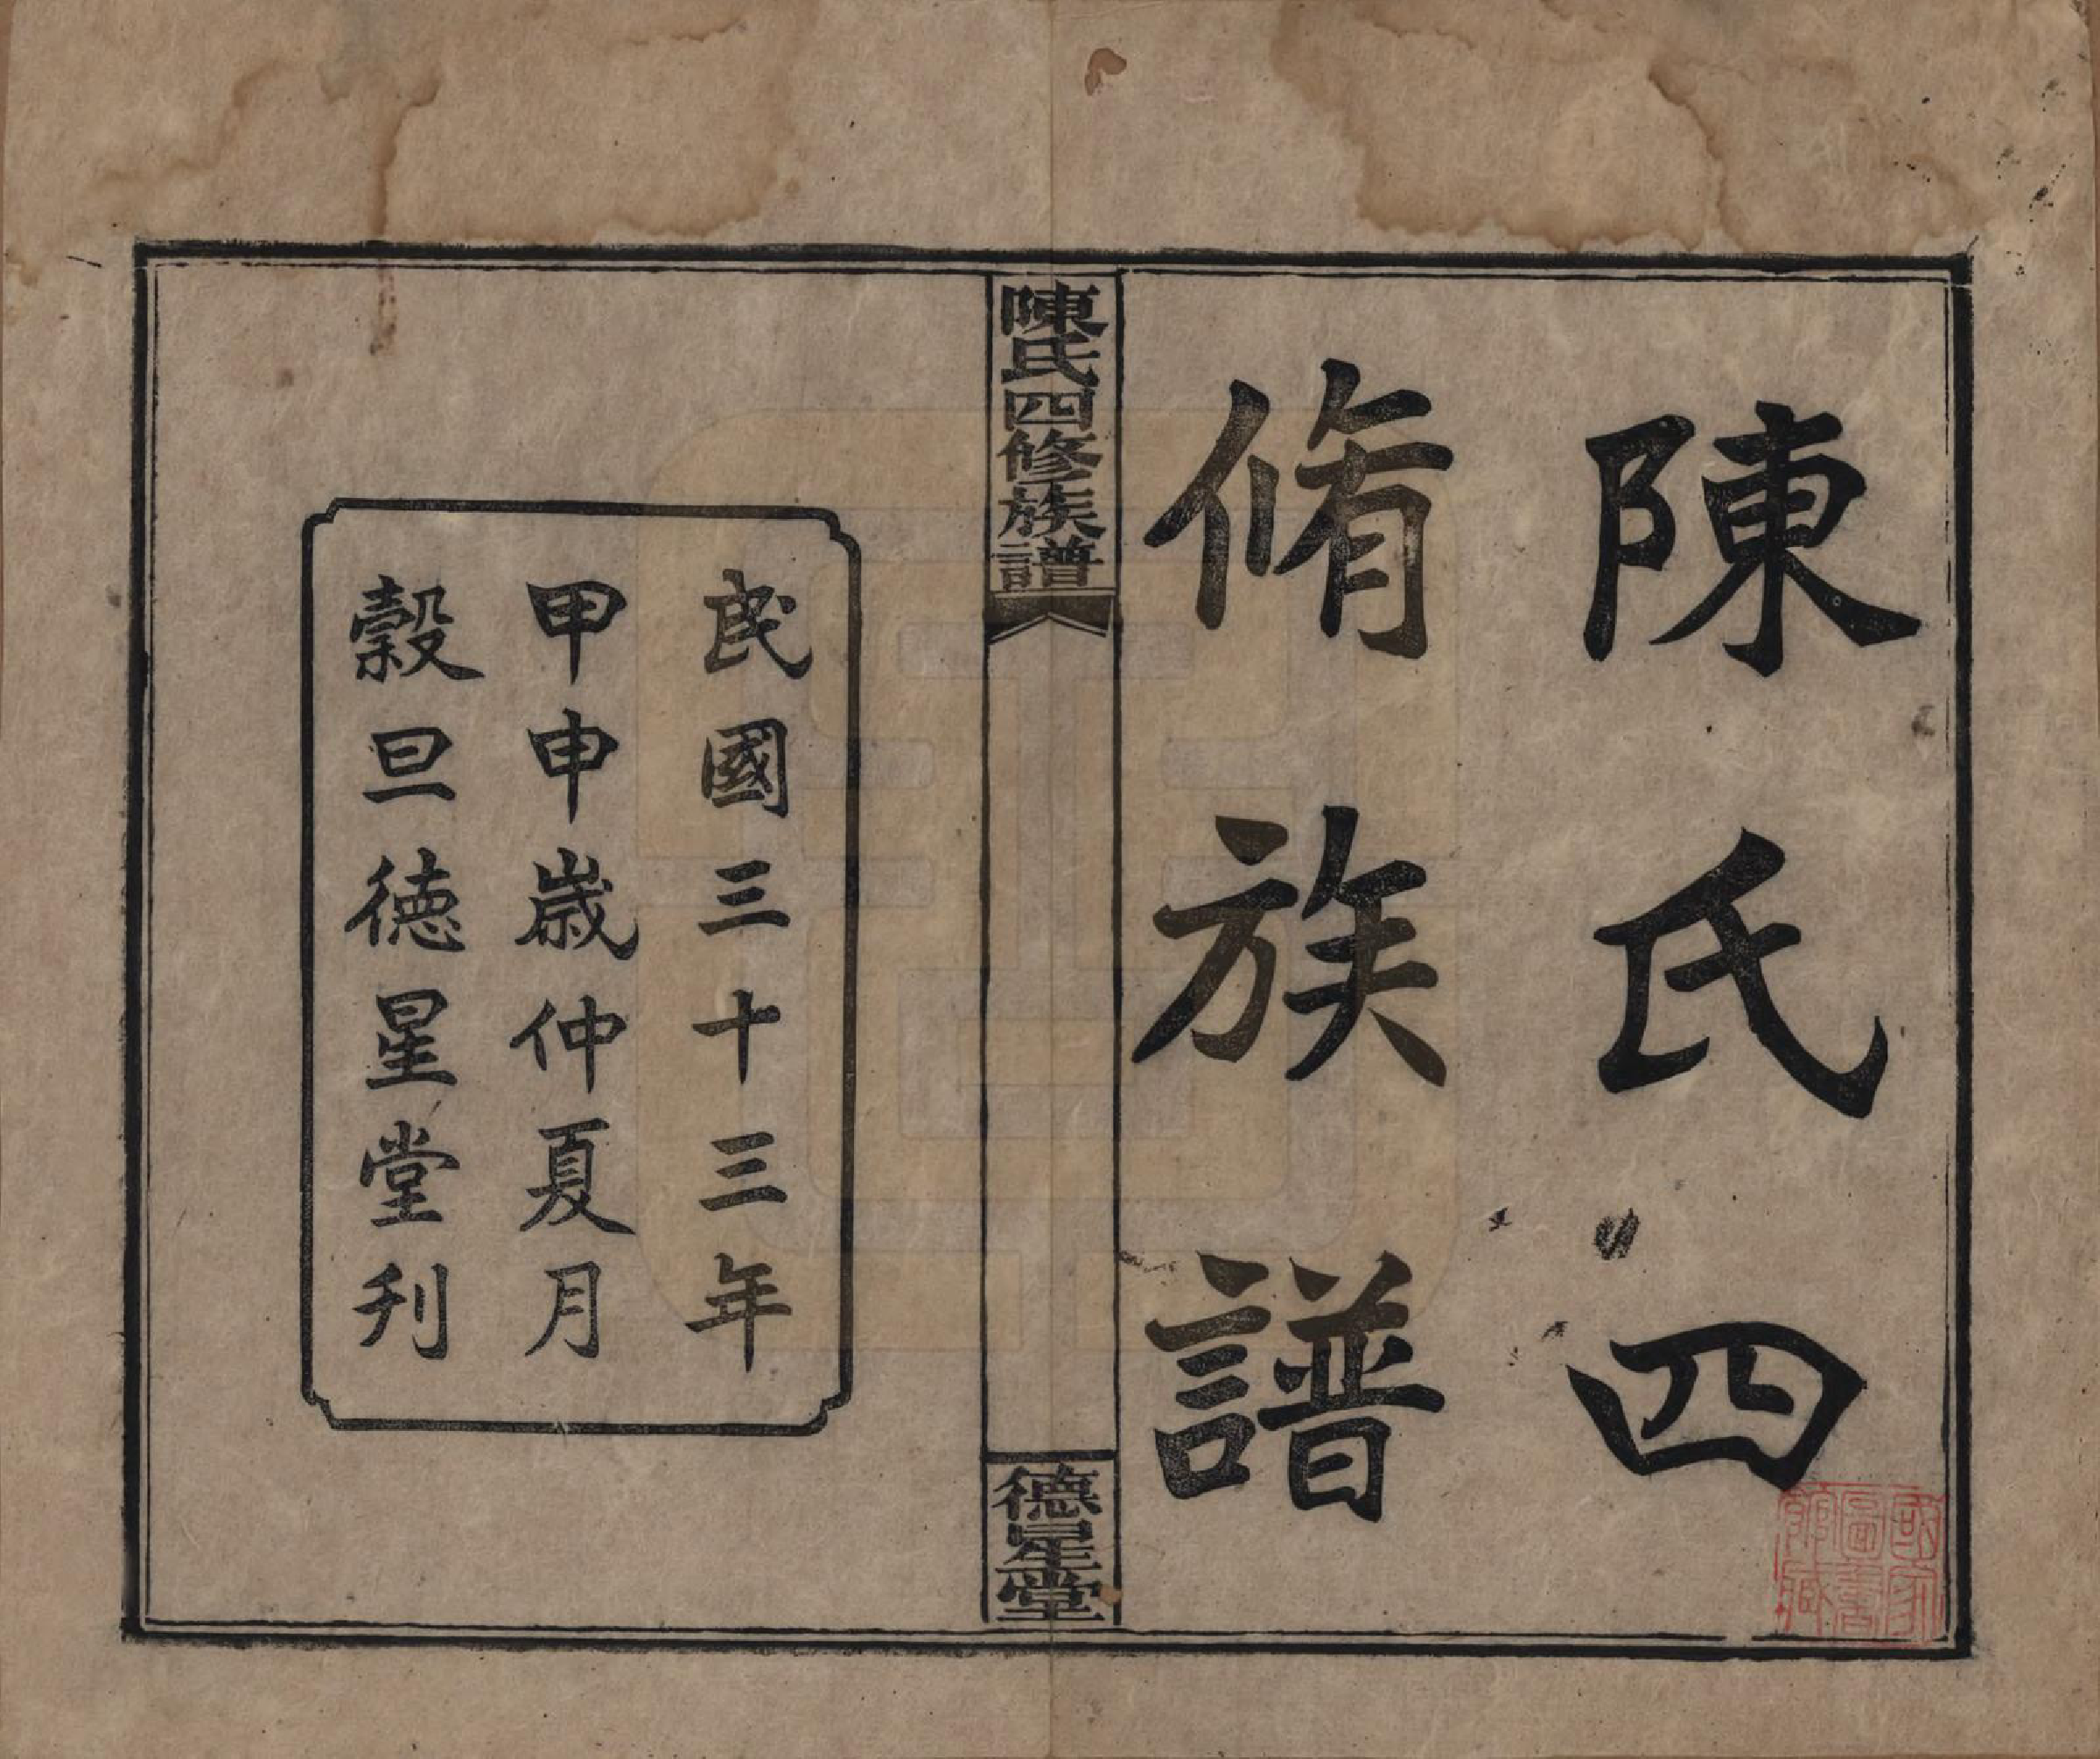 陳氏四
脩族譜
陳氏四修族譜
德星堂
民國三十三年
甲申歲仲夏月
榖旦德星堂刊
國家
圖書
館藏